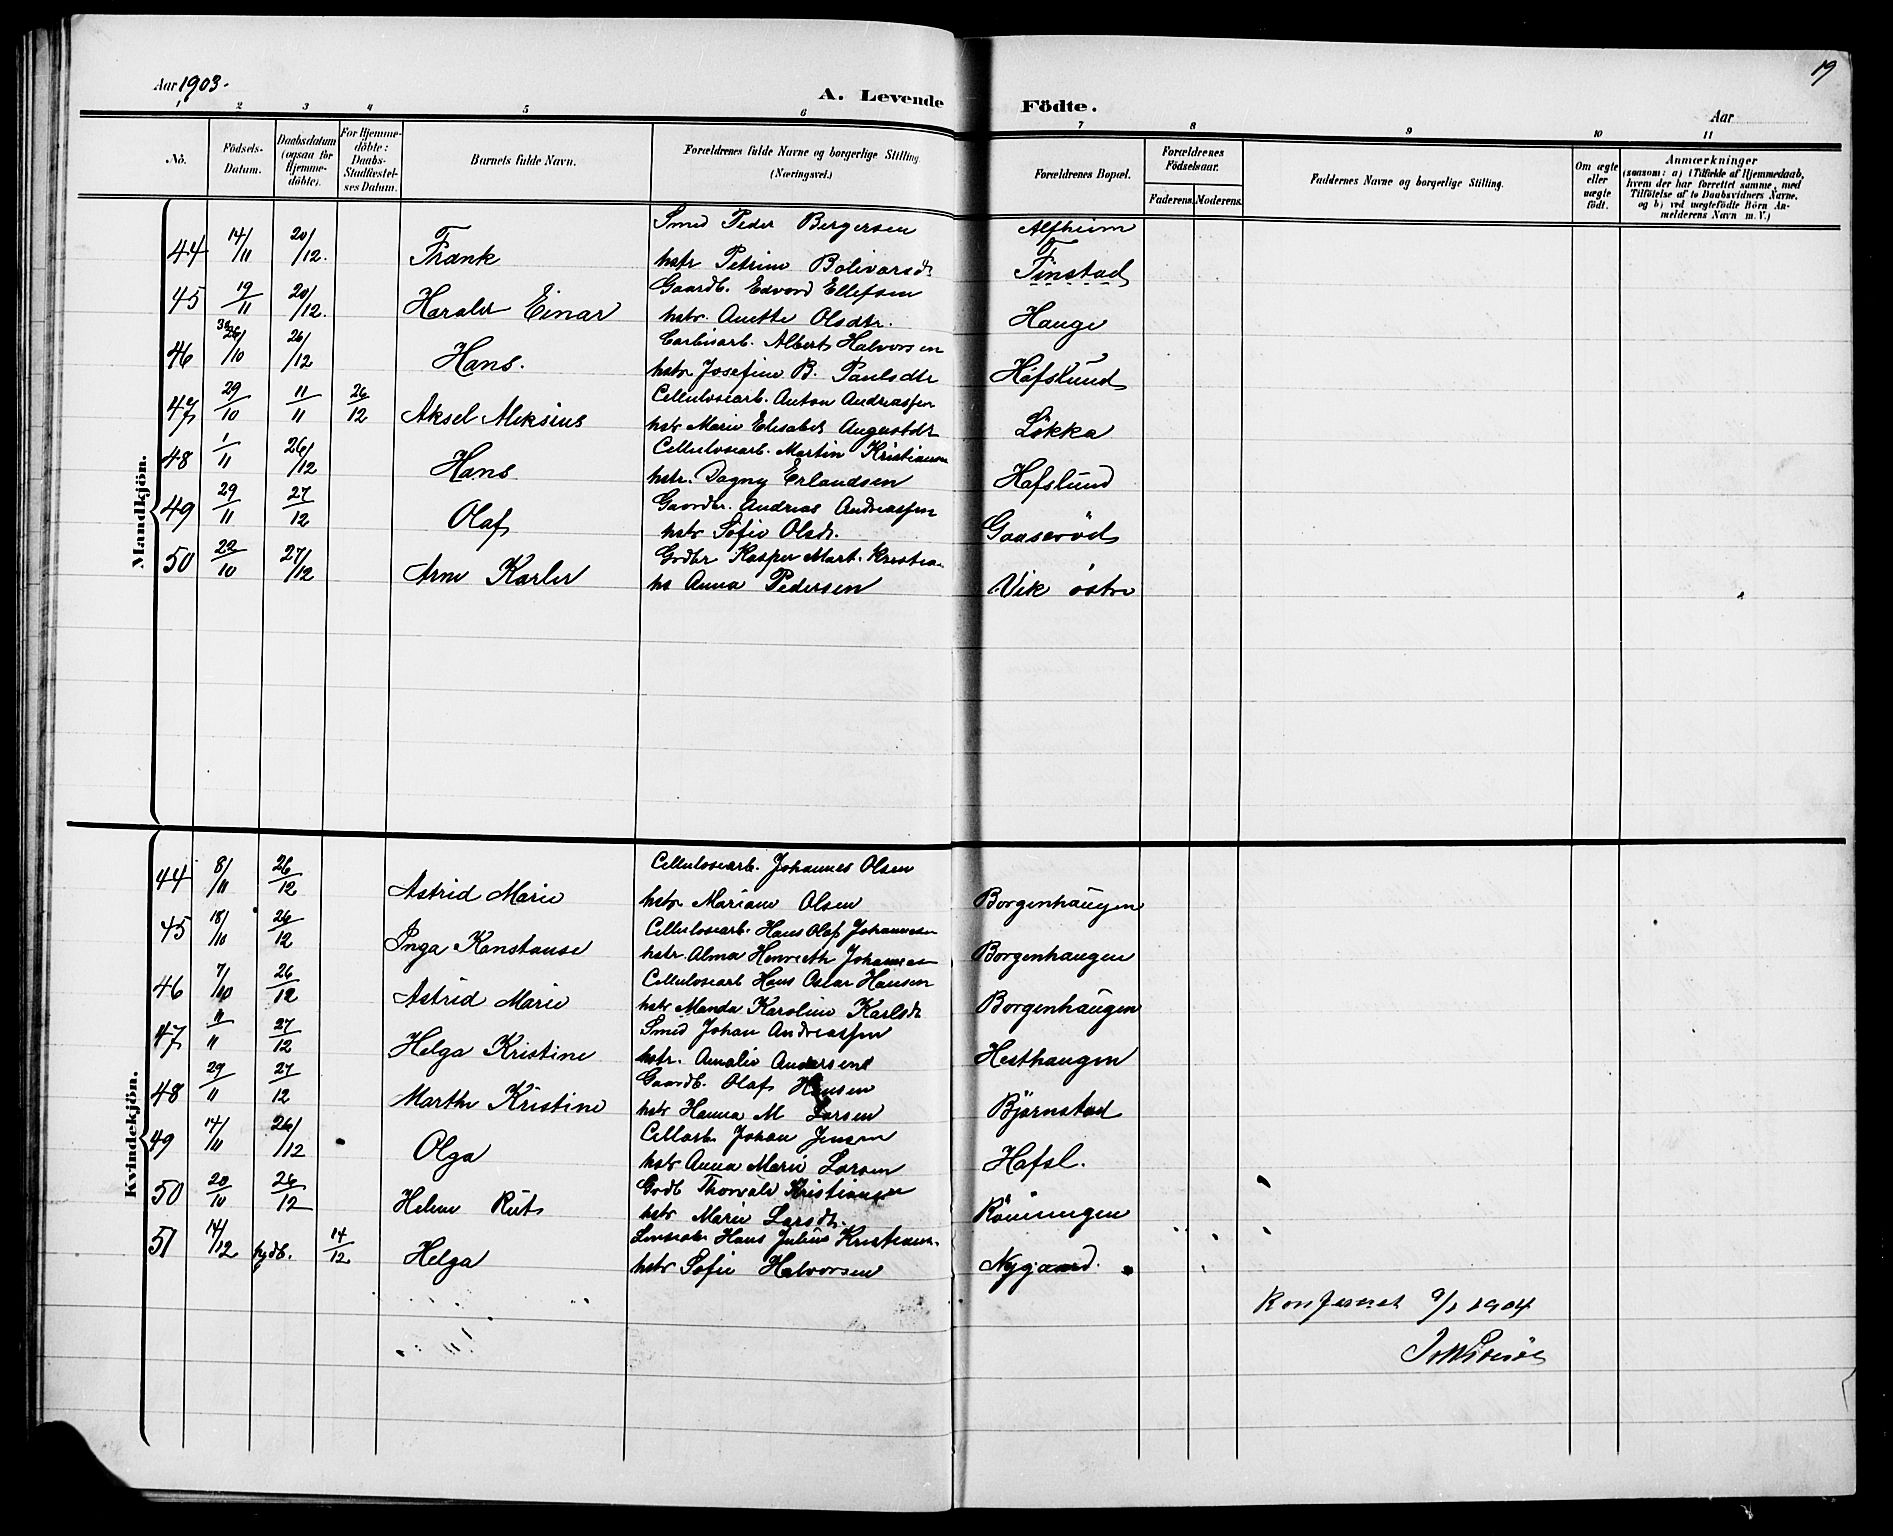 Aar 1903.
A. Levende Födte.
19
Aar
1 2 3 4 5 6 7 8 9 10 11
No.
Födsels-Datum.
Daabsdatum (ogsaa for Hjemme-döbte).
For Hjemme-döbte: Daabs-Stadfæstel-ses Datum.
Barnets fulde Navn.
Forældrenes fulde Navne og borgerlige Stilling. (Næringsvei.)
Forældrenes Bopæl.
Forældrenes Födselsaar.
Faderens. Moderens.
Faddernes Navne og borgerlige Stilling.
Om ægte eller uægte födt.
Anmærkninger
(saasom: a) i Tilfælde af Hjemmedaab,
hvem der har forrettet samme, med
Tilföielse af to Daabsvidners Navne,
og b) ved uægtefödte Börn An-
melderens Navn m. V.)
Mandkjön.
Smed Peder Bergersen Alfheim
44 14/11 20/12. Frank hstr Petrine Bolivarsdr Finstad
Gaardb. Edvard Ellefsen
45 19/11 20/12. Harald Einar hstr Anette Olsdtr. Hauge
Carbidarb. Albert Halvorsen
46 26/10 26/12 Hans. hstr Josefine B. Paulsdtr Hafslund
Cellulosearb. Anton Andreassen
47 29/10 11/11 26/12 Aksel Aleksius hstr Marie Elisabet Augustdtr Løkka
Cellulosearb. Martin Kristiansen
48 1/11 26/12 Hans hstr. Dagny Erlandsen Hafslund
Gaardbr. Andreas Andreassen
49 29/11 27/12 Olaf hstr Sofie Olsdr. Gaaserød
Grdbr Kasper Mart. Kristian
50 22/10 27/12 Arne Karler hs Anna Pedersen Vik østre
Kvindekjön.
Cellulosearb. Johannes Olsen
44 8/11 26/12 Astrid Marie hstr Mariane Olsen Borgenhaugen
Cellulosearb. Hans Olaf Johannesen
45 18/10 26/12 Inga Konstanse hstr. Alma Henriette Johansen Borgenhaugen
Cellulosearb Hans Oskar Hansen
46 7/10 26/12 Astrid Marie hstr Manda Karoline Karlsdr Borgenhaugen
Smed Johan Andreassen
47 11/11 27/12 Helga Kristine hstr. Amalie Andersen Hesthaugen
Gaardb. Olaf Hansen
48 29/11 27/12 Marthe Kristine hstr Hanna M Larsen Bjørnstad
Cellarb Johan Jensen
49 14/11 26/12 Olga hstr Anna Marie Larsen Hafsl.
Grdb Thorvald Kristiansen
50 20/10 26/12 Helene Rut hstr Marie Larsdtr. Rønningen
Hans Julius Kristiansen
51 14/12 hjdb. 14/12 Helga hstr Sofie Halvorsen Nygaard.
Konfereret 9/1 1904